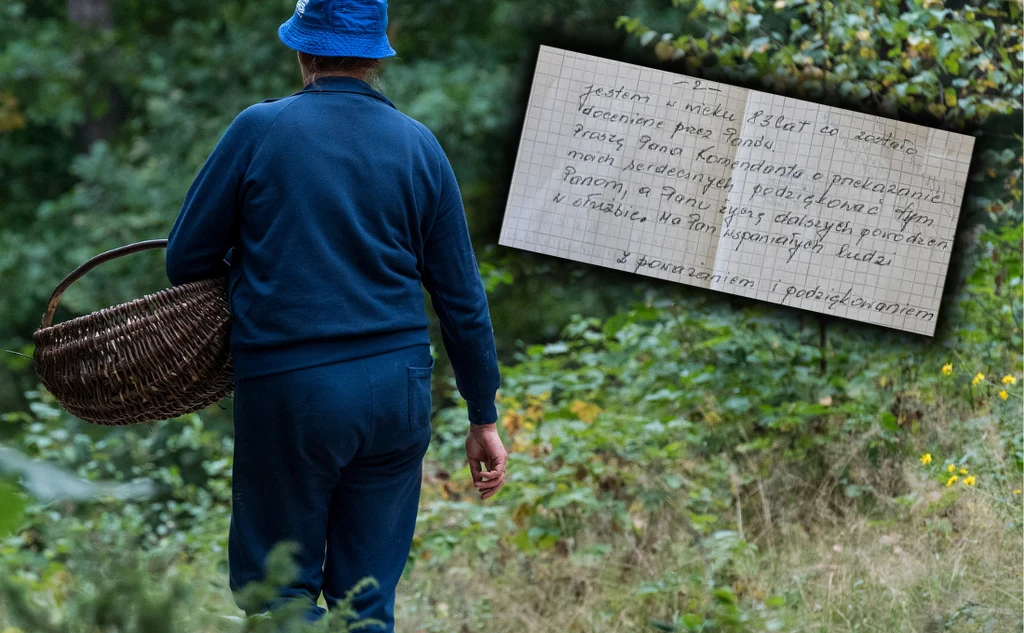 -2-
jestem w wieku 83 lat co zostało
docenione przez Panów.
Proszę Pana Komendanta o przekazanie
moich serdecznych podziękować tym
Panom, a Panu życzę dalszych powodzeń
w służbie. Ma Pan wspaniałych ludzi
Z poważaniem i podziękowaniem